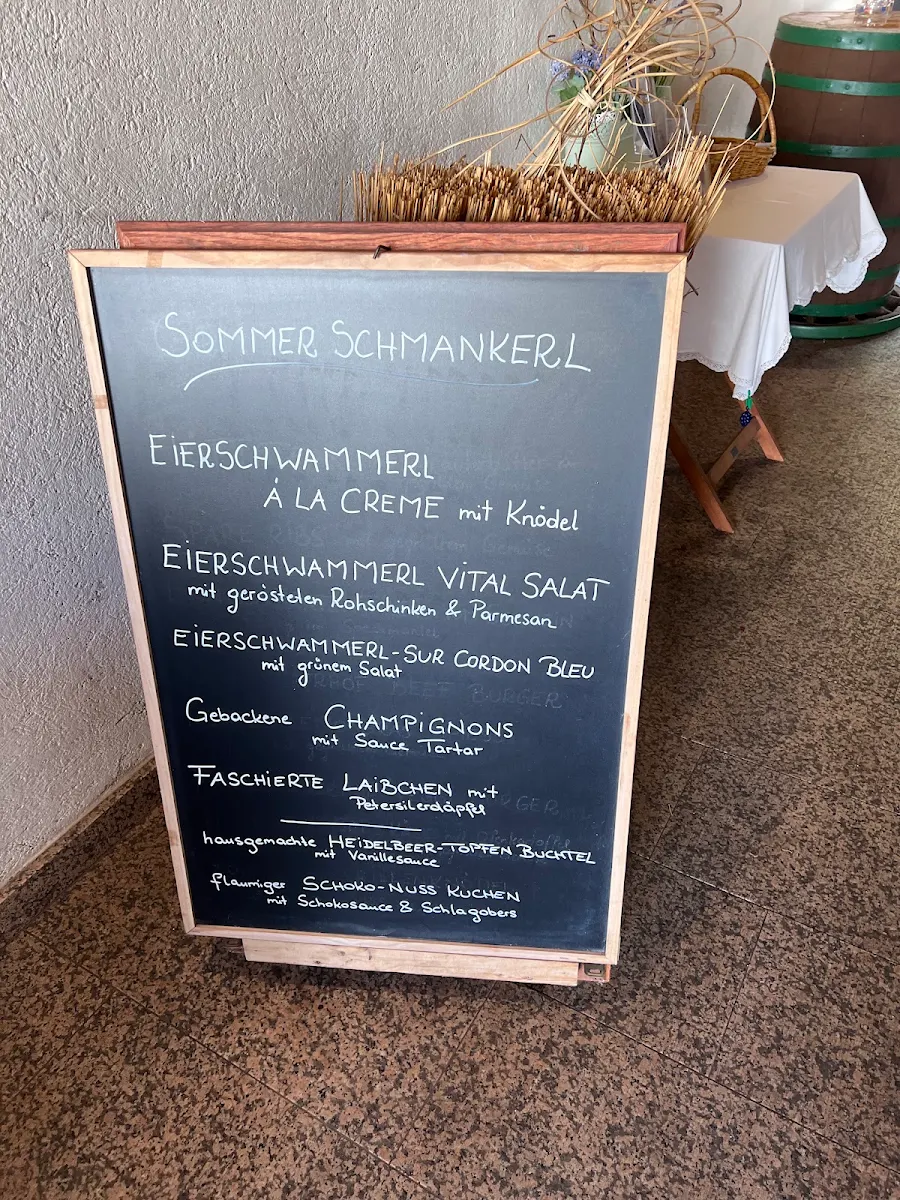 SOMMER SCHMANKERL
EiERSCHWAMMERL
Á LA CREME mit Knödel
EiERSCHWAMMERL ViTAL SALAT
mit gerösteten Rohschinken & Parmesan
EiERSCHWAMMERL-SUR CORDON BLEU
mit grünem Salat
Gebackene CHAMPiGNONS
mit Sauce Tartar
FASCHiERTE LAiBCHEN mit
Petersilerdäpfel
hausgemachte HEiDELBEER-TOPFEN BUCHTEL
mit Vanillesauce
flaumiger SCHOKO-NUSS KUCHEN
mit Schokosauce & Schlagobers